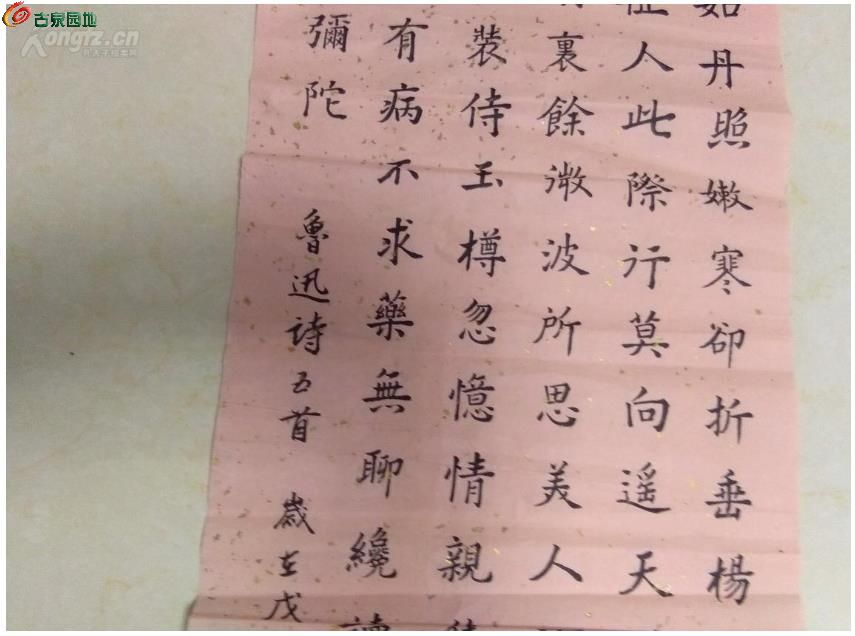 如丹照嫩寒卻折垂楊
征人此際行莫向遥天
裏餘微波所思美人
裝侍玉樽忽憶情親
有病不求藥無聊纔讀
彌陀
魯迅詩五首 歲在戊
古泉园地
Kongfz.cn